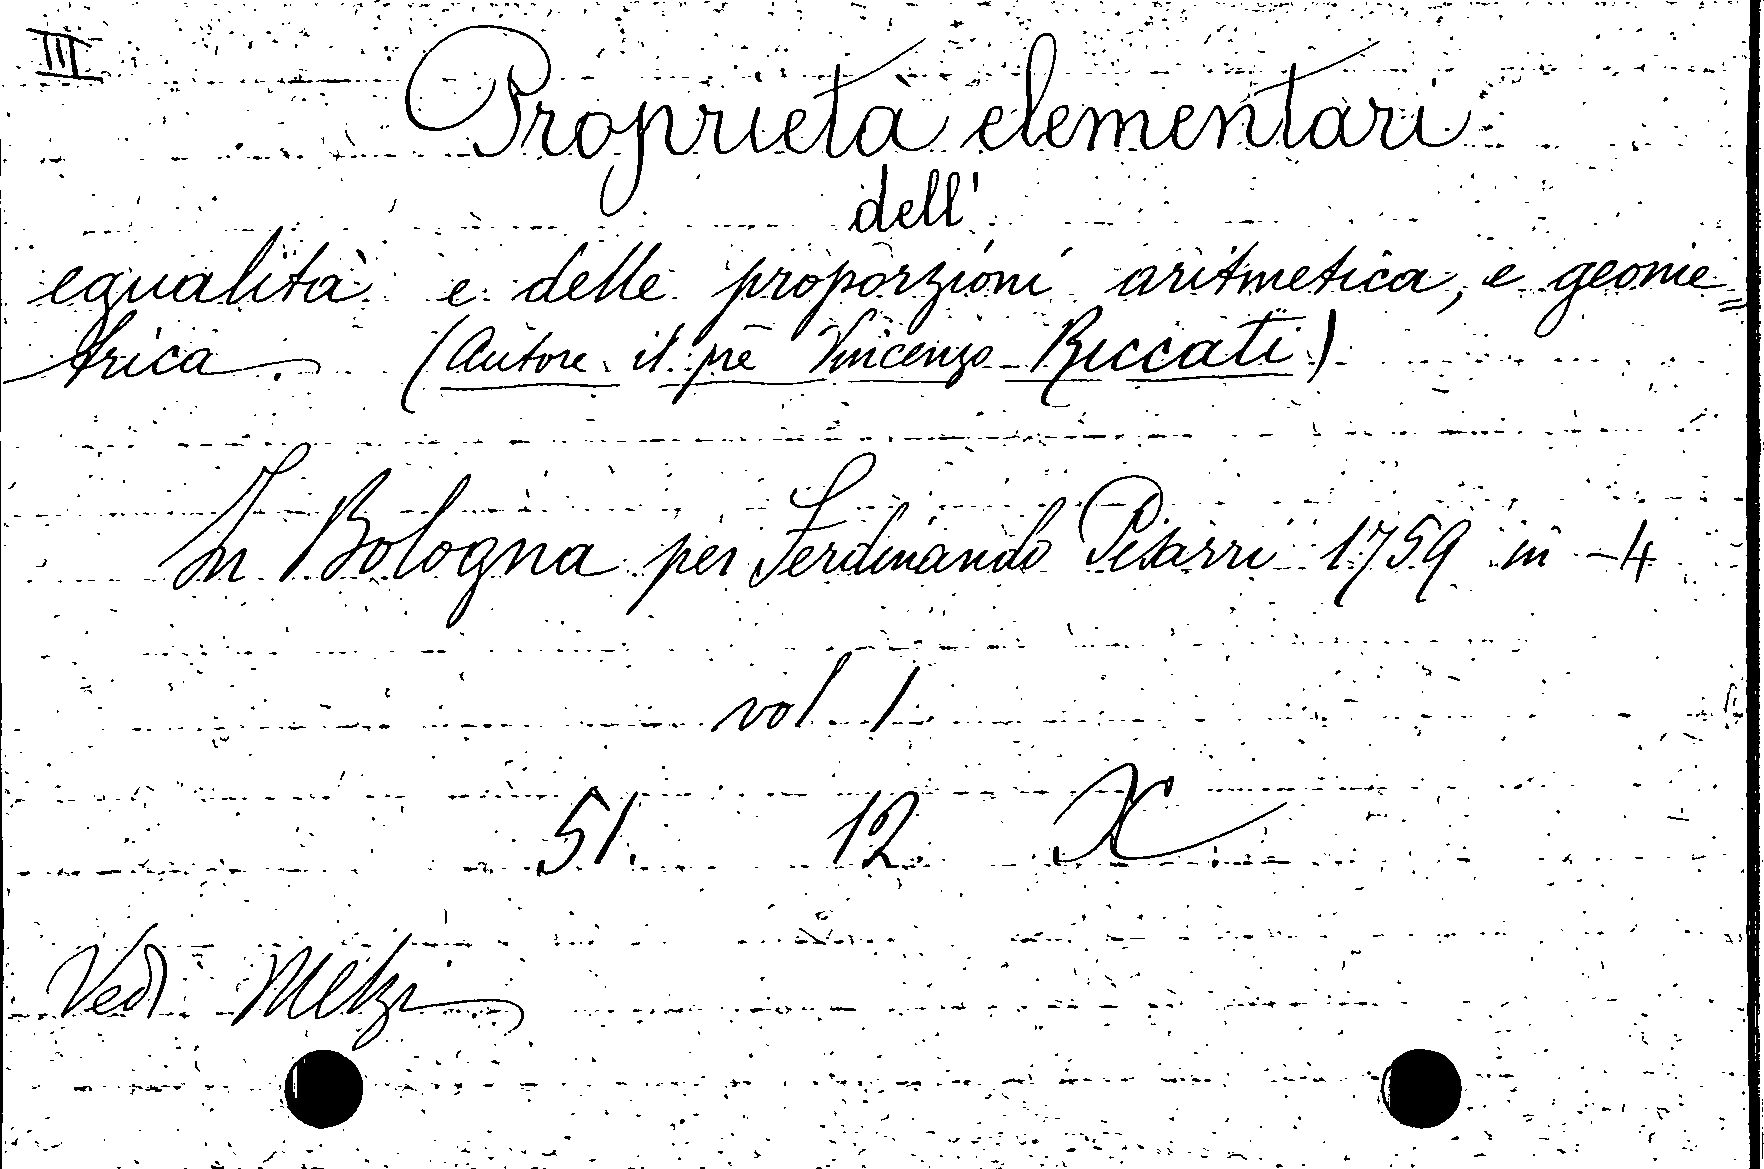 III
Proprietà elementari
dell'
egualità e delle proporzioni aritmetica, e geome=
trica. (Autore il pre Vincenzo Riccati)
In Bologna per Ferdinando Pisarri 1759 in -4
vol 1
51. 12. X
Vedi Melzi